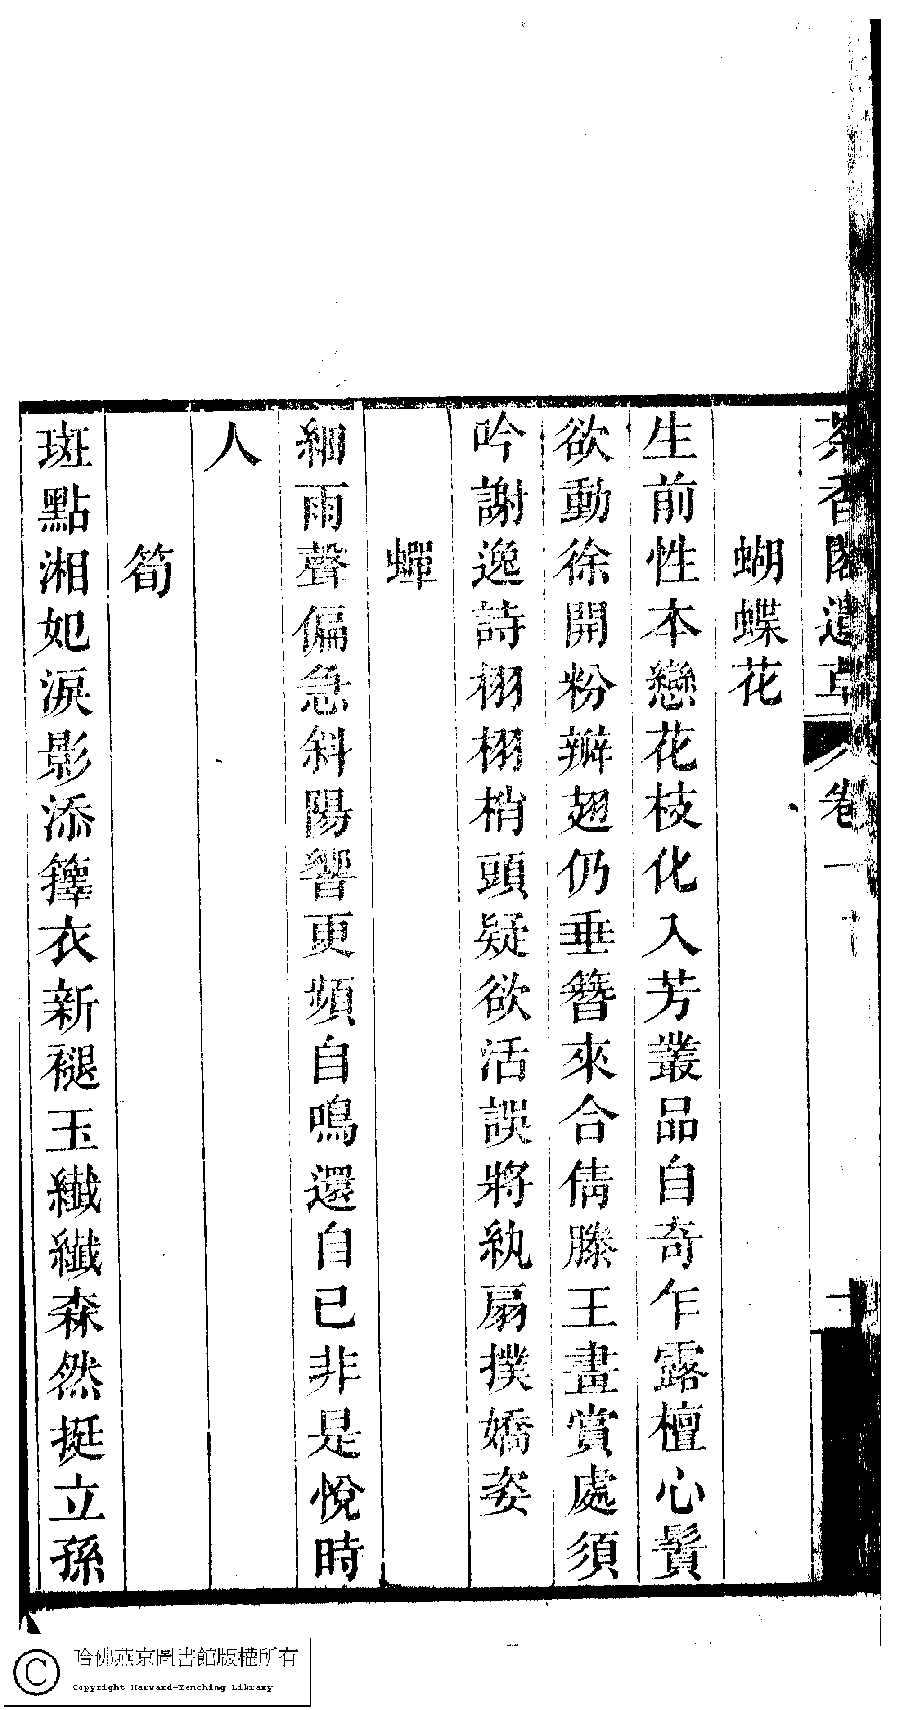 茶香閣遺草 卷一 十
蝴蝶花
生前性本戀花枝化入芳叢品自奇乍露檀心鬚
欲動徐開粉瓣翅仍垂簪來合倩滕王畫賞處須
吟謝逸詩栩栩梢頭疑欲活誤將紈扇撲嬌姿
蟬
細雨聲偏急斜陽響更頻自鳴還自已非是悅時
人
筍
斑點湘妃淚影添籜衣新褪玉纖纖森然挺立孫
哈佛燕京圖書館版權所有
Copyright Harvard-Yenching Library